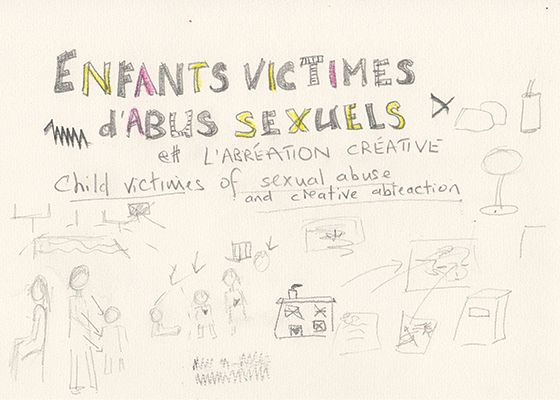 ENFANTS VICTIMES
d'ABUS SEXUELS
et L'ABRÉATION CRÉATIVE
Child victimes of sexual abuse
and creative abreaction